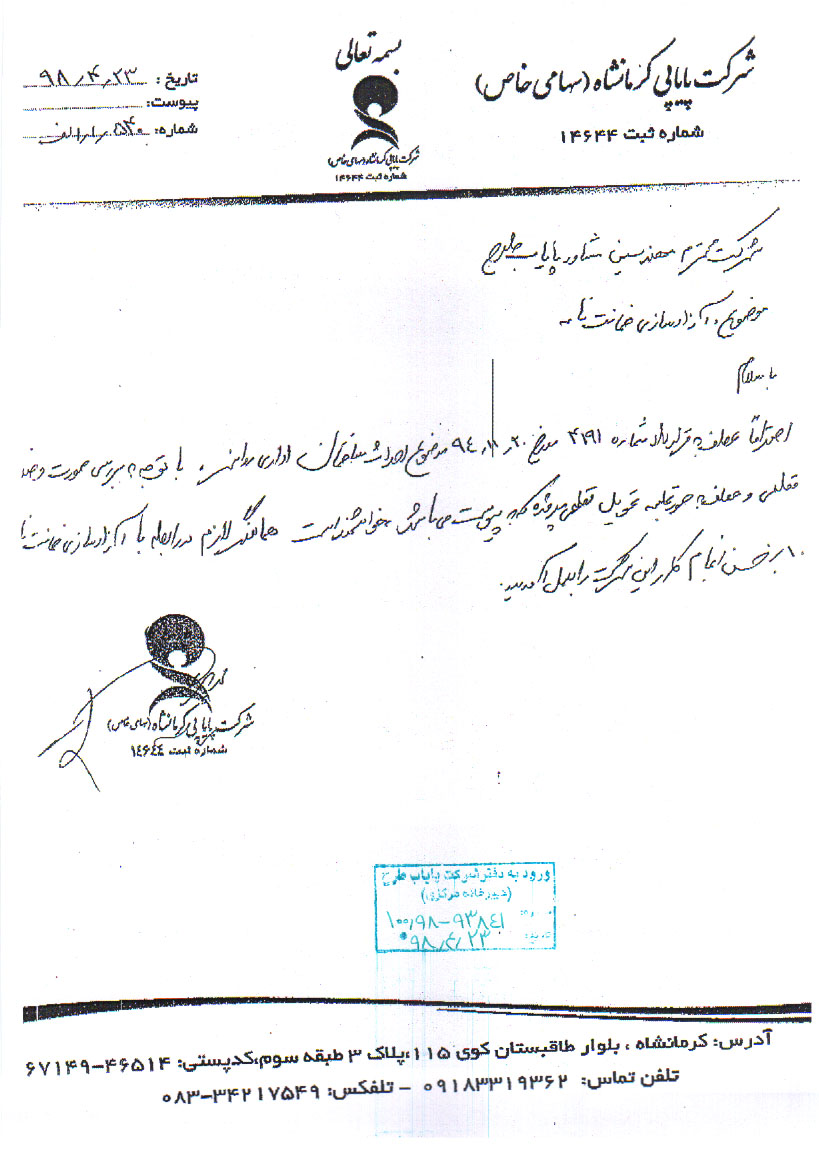 بسمه تعالی
شرکت پاپایی کرمانشاه (سهامی خاص)
شماره ثبت ۱۴۶۴۴
تاریخ: ۹۸/۴/۲۳
پیوست:
شماره: ۵۴۰/ر/الف
شرکت پاپایی کرمانشاه (سهامی خاص)
شماره ثبت ۱۴۶۴۴
شرکت محترم مهندسین مشاور پایاب طرح
موضوع: آزادسازی ضمانت نامه
با سلام
احتراماً عطف به قرارداد شماره ۴۱۹۱ مورخ ۹۴/۱۱/۲۰ موضوع احداث ساختمان اداری با توجه به بررسی صورت وضعیت
قطعی و عطف به صورتجلسه تحویل قطعی که پیوست می باشد خواهشمند است هماهنگی لازم در رابطه با آزادسازی ضمانت نامه
۱۰٪ حسن انجام کار این شرکت را بعمل آورید.
شرکت پاپایی کرمانشاه (سهامی خاص)
شماره ثبت ۱۴۶۴۴
ورود به دفتر شرکت پایاب طرح
(دبیرخانه مرکزی)
۱۰۰/۹۸-۹۳۸۴۱
۹۸/۴/۲۳
آدرس: کرمانشاه ، بلوار طاقبستان کوی ۱۱۵،پلاک ۳ طبقه سوم،کدپستی: ۴۶۵۱۴-۶۷۱۴۹
تلفن تماس: ۰۹۱۸۳۳۱۹۳۶۲ - تلفکس: ۳۴۲۱۷۵۴۹-۰۸۳